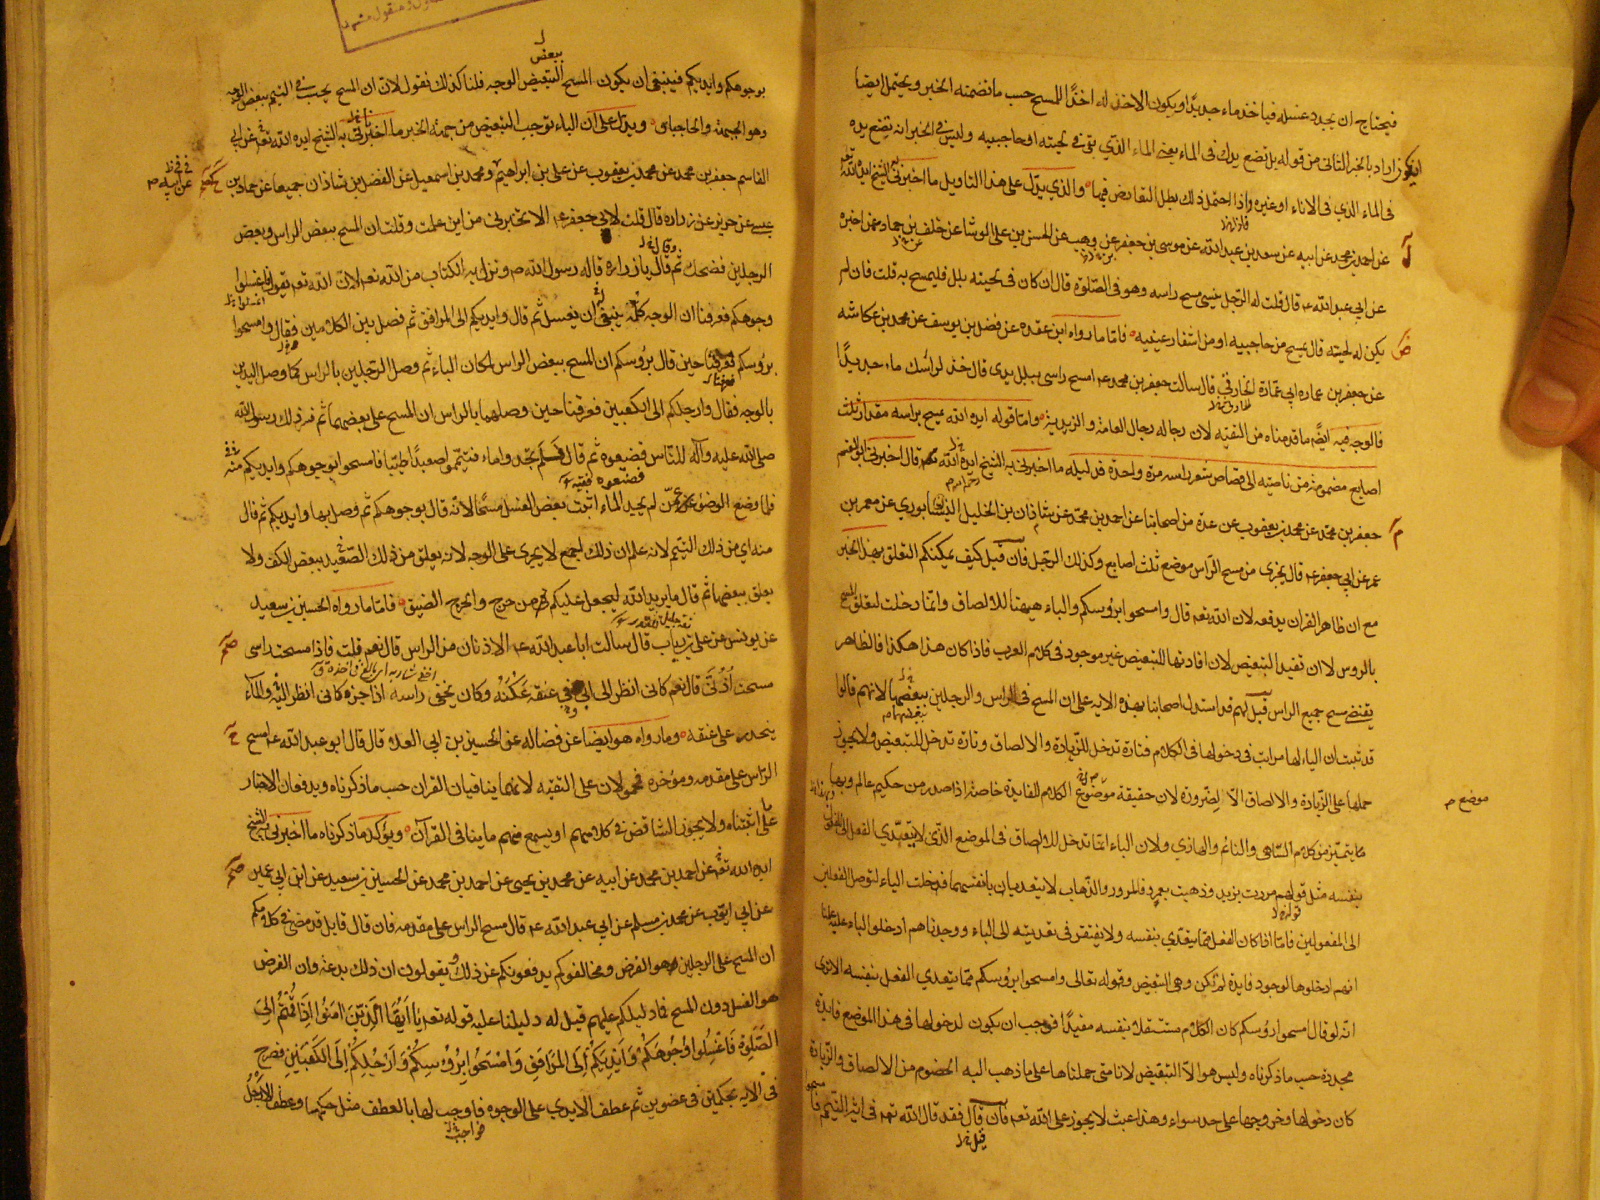 فيحتاج ان يجدد غسله فياخذ ماء جديدا ويكون الاخذ له اخذا للمسح حسب ما تضمنه الخبر ويحتمل ايضا
ان يكون اراد بالخبر الثاني من قوله بل تضع يدك في الماء يعني الماء الذي بقي في لحيته او حاجبيه وليس في الخبر انه يضع يده
في الماء الذي في الاناء او غيره واذا احتمل ذلك بطل التعارض فيها والذي يدل على هذا التاويل ما اخبرني الشيخ ايده الله
عن احمد بن محمد عن ابيه عن سعد بن عبد الله عن موسى بن جعفر عن وهب عن الحسن بن علي الوشا عن خلف بن حماد عمن اخبره
عن ابي عبد الله ع قال قلت له الرجل ينسى مسح راسه وهو في الصلوة قال ان كان في لحيته بلل فليمسح به قلت فان لم
يكن له لحية قال يمسح من حاجبيه او من اشفار عينيه فاما ما رواه ابن عقدة عن فضل بن يوسف عن محمد بن عكاشه
عن جعفر بن عماره ابي عمارة الحارثي قال سالت جعفر بن محمد ع امسح راسي ببلل يدي قال خذ لراسك ماء جديدا
فالوجه فيه ايضا ما قدمناه من التقيه لان رجاله رجال العامة والزيدية واما قوله ايده الله يمسح براسه مقدار ثلث
اصابع مضمومة من ناصيته الى قصاص شعر راسه مرة واحدة فدليله ما اخبرني به الشيخ ايده الله قال اخبرني ابو القسم
جعفر بن محمد عن محمد بن يعقوب عن عدة من اصحابنا عن احمد بن محمد عن شاذان بن الخليل النيسابوري عن معمر بن
عمر عن ابي جعفر ع قال يجزى من مسح الراس موضع ثلث اصابع وكذلك الرجل فان قيل كيف يمكنكم التعلق بهذا الخبر
مع ان ظاهر القران يدفعه لان الله تعم قال وامسحوا برؤسكم والباء هيهنا للالصاق وانما دخلت لتعلق المسح
بالروس لا ان تفيد التبعيض لان افادتها للتبعيض غير موجود في كلام العرب فاذا كان هذا هكذا فالظاهر
يقتضي مسح جميع الراس قيل لهم قد استدل اصحابنا بهذه الايه على ان المسح في الراس والرجلين ببعضها لانهم قالوا
قد ثبت ان الباء لها مراتب في دخولها في الكلام فتارة تدخل للزيادة والالصاق وتارة تدخل للتبعيض ولا يجوز
حملها على الزيادة والالصاق الا لضرورة لان حقيقة موضوع الكلام للفايدة خاصة اذا صدر من حكيم عالم وبها
موضع م
ما يتميز من كلام الساهي والنائم والهاذي ولان الباء انما تدخل للالصاق في الموضع الذي لا يتعدى الفعل الى المفعول
بنفسه مثل قولهم مررت بزيد وذهبت بعمرو فالمرور والذهاب لا يتعديان بانفسهما فدخلت الباء لتوصل الفعلين
الى المفعولين فاما اذا كان الفعل مما يتعدى بنفسه ولا يفتقر في تعديته الى الباء ووجدناهم ادخلوا الباء عليه علمنا
انهم ادخلوها لوجود فايدة لم تكن وهي التبعيض وقوله تعالى وامسحوا برؤسكم مما يتعدى الفعل بنفسه الا ترى
انه لو قال امسحوا رؤسكم كان الكلام مستقلا بنفسه مفيدا فوجب ان يكون لدخولها في هذا الموضع فايدة
مجددة حسب ما ذكرناه وليس هو الا التبعيض لانا متى حملناها على ما ذهب اليه الخصوم من الالصاق والزيادة
كان دخولها وخروجها على حد سواء وهذا عبث لا يجوز على الله تعم فان قال فقد قال الله تعم في اية التيمم فامسحوا
ببعض
بوجوهكم وايديكم فينبغي ان يكون المسح التبعيض الوجه قلنا كذلك نقول لان ان المسح يجب في التيمم ببعض الوجه
وهو الجبهة والحاجبان ويدل على ان الباء توجب التبعيض من جهة الخبر ما اخبرني به الشيخ ايده الله تعم عن ابي
القاسم جعفر بن محمد عن محمد بن يعقوب عن علي بن ابراهيم ومحمد بن اسمعيل عن الفضل بن شاذان جميعا عن حماد بن
عيسى عن حريز عن زراره قال قلت لابي جعفر ع الا تخبرني من اين علمت وقلت ان المسح ببعض الراس وبعض
الرجلين فضحك ثم قال يا زراره قاله رسول الله ص ونزل به الكتاب من الله تعم لان الله تعم يقول فاغسلوا
وجوهكم فعرفنا ان الوجه كله ينبغي ان يغسل ثم قال وايديكم الى المرافق ثم فصل بين الكلامين فقال وامسحوا
برؤسكم فعرفنا حين قال برؤسكم ان المسح ببعض الراس لمكان الباء ثم وصل الرجلين بالراس كما وصل اليدين
بالوجه فقال وارجلكم الى الكعبين فعرفنا حين وصلهما بالراس ان المسح على بعضهما ثم فسر ذلك رسول الله
صلى الله عليه وآله للناس فضيعوه ثم قال فلم تجدوا ماء فتيمموا صعيدا طيبا فامسحوا بوجوهكم وايديكم منه
فلما وضع الوضوء عمن لم يجد الماء اثبت بعض الغسل مسحا لانه قال بوجوهكم ثم وصل بها وايديكم ثم قال
منه اي من ذلك التيمم لانه علم ان ذلك اجمع لا يجري على الوجه لانه يعلق من ذلك الصعيد ببعض الكف ولا
يعلق ببعضها ثم قال ما يريد الله ليجعل عليكم من حرج والحرج الضيق فاما ما رواه الحسين بن سعيد
عن يونس عن علي بن رياب قال سالت ابا عبد الله ع الاذنان من الراس قال نعم قلت فاذا مسحت راسي
مسحت اذني قال نعم كاني انظر الى ابي في عنقه عكنة وكان يحفي راسه اذا جزه كاني انظر اليه والماء
ينحدر على عنقه وما رواه هو ايضا عن فضاله عن الحسين بن ابي العلا قال قال ابو عبد الله ع امسح
الراس على مقدمه ومؤخره فمحمولان على التقيه لانهما ينافيان القران حسب ما ذكرناه ويدفعان الاخبار
على ما اثبتناه ولا يجوز التناقض في كلامهم او يسمع منهم ما ينافي القرآن ويؤكد ما ذكرناه ما اخبرني الشيخ
ايده الله تعم عن احمد بن محمد عن ابيه عن محمد بن يحيى عن احمد بن محمد عن الحسين بن سعيد عن ابن ابي عمير
عن ابي ايوب عن محمد بن مسلم عن ابي عبد الله ع قال مسح الراس على مقدمه فان قال قايل قد مضى في كلامكم
ان المسح على الرجلين هو الفرض ومخالفوكم يدفعونكم عن ذلك ويقولون ان ذلك بدعة وان الفرض
هو الغسل دون المسح فما دليلكم عليهم قيل له دليلنا عليه قوله تعم يا ايها الذين امنوا اذا قمتم الى
الصلوة فاغسلوا وجوهكم وايديكم الى المرافق وامسحوا برؤسكم وارجلكم الى الكعبين فصرح
في الايه بحكمين في عضوين ثم عطف الايدي على الوجوه فاوجب لها بالعطف مثل حكمها وعطف الارجل